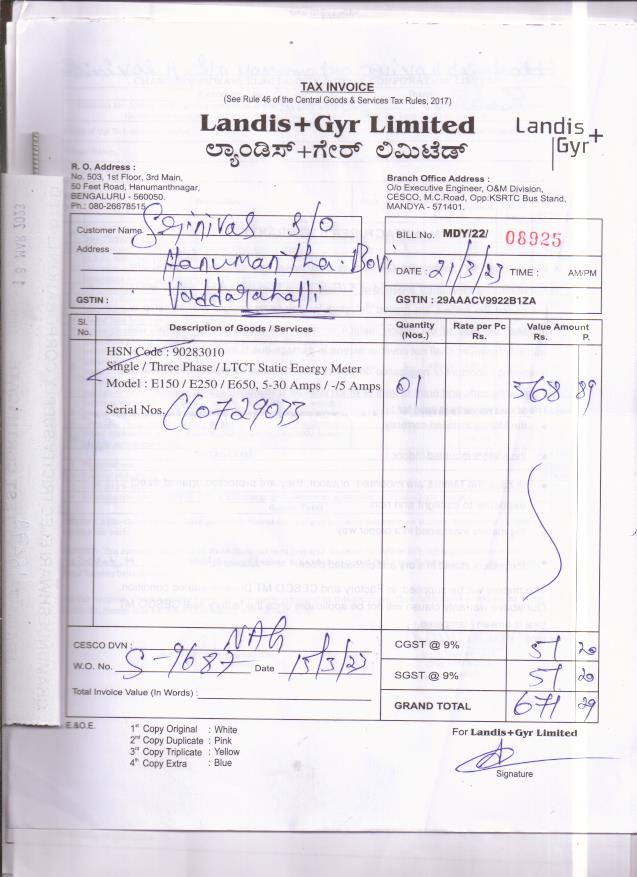 TAX INVOICE
(See Rule 46 of the Central Goods & Services Tax Rules, 2017)
Landis+Gyr Limited
ಲ್ಯಾಂಡಿಸ್+ಗೇರ್ ಲಿಮಿಟೆಡ್
Landis+
Gyr
R. O. Address :
No. 503, 1st Floor, 3rd Main,
50 Feet Road, Hanumanthnagar,
BENGALURU - 560050.
Ph.: 080-26678515
Branch Office Address :
O/o Executive Engineer, O&M Division,
CESCO, M.C.Road, Opp:KSRTC Bus Stand,
MANDYA - 571401.
Customer Name Srinivas S/O
Address Hanumantha Bovi
GSTIN : Vaddarahalli
BILL No. MDY/22/ 08925
DATE : 21/3/23 TIME : AM/PM
GSTIN : 29AAACV9922B1ZA
Sl. No. Description of Goods / Services Quantity (Nos.) Rate per Pc Rs. Value Amount Rs. P.
HSN Code : 90283010
Single / Three Phase / LTCT Static Energy Meter
Model : E150 / E250 / E650, 5-30 Amps / -/5 Amps 01 568 89
Serial Nos. CC0729033
CESCO DVN :
W.O. No. S-9687 Date 15/3/23
Total Invoice Value (In Words) :
CGST @ 9% 51 20
SGST @ 9% 51 20
GRAND TOTAL 671 29
E.&O.E.
1st Copy Original : White
2nd Copy Duplicate : Pink
3rd Copy Triplicate : Yellow
4th Copy Extra : Blue
For Landis+Gyr Limited
Signature
18 MAR 2023